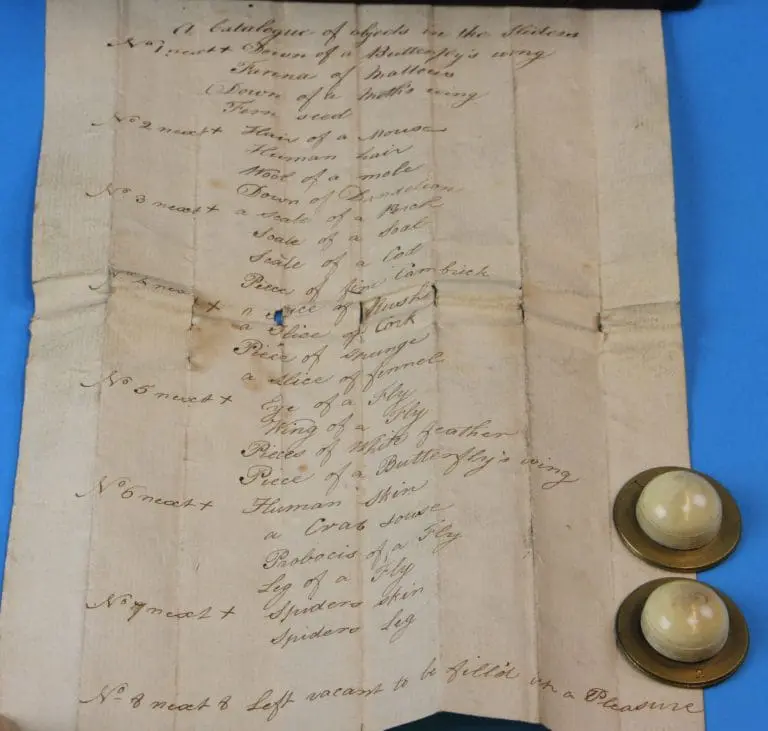 A Catalogue of objects in the Sliders
No 1 next + Down of a Butterfly's wing
Farina of Mallows
Down of a Moth's wing
Fern seed
No 2 next + Hair of a Mouse
Human hair
Wool of a mole
Down of Dandelion
No 3 next + a Scale of a Perch
Scale of a Soal
Scale of a Cod
Piece of fine Cambrick
No 4 next + a Slice of Rush
a Slice of Cork
Piece of Spunge
a Slice of fennel
No 5 next + Eye of a Fly
Wing of a Fly
Pieces of White feather
Piece of a Butterfly's wing
No 6 next + Human Skin
a Crab Louse
Probocis of a Fly
Leg of a Fly
No 7 next + Spiders Skin
Spiders Leg
No 8 next 8 Left vacant to be fill'd a Pleasure